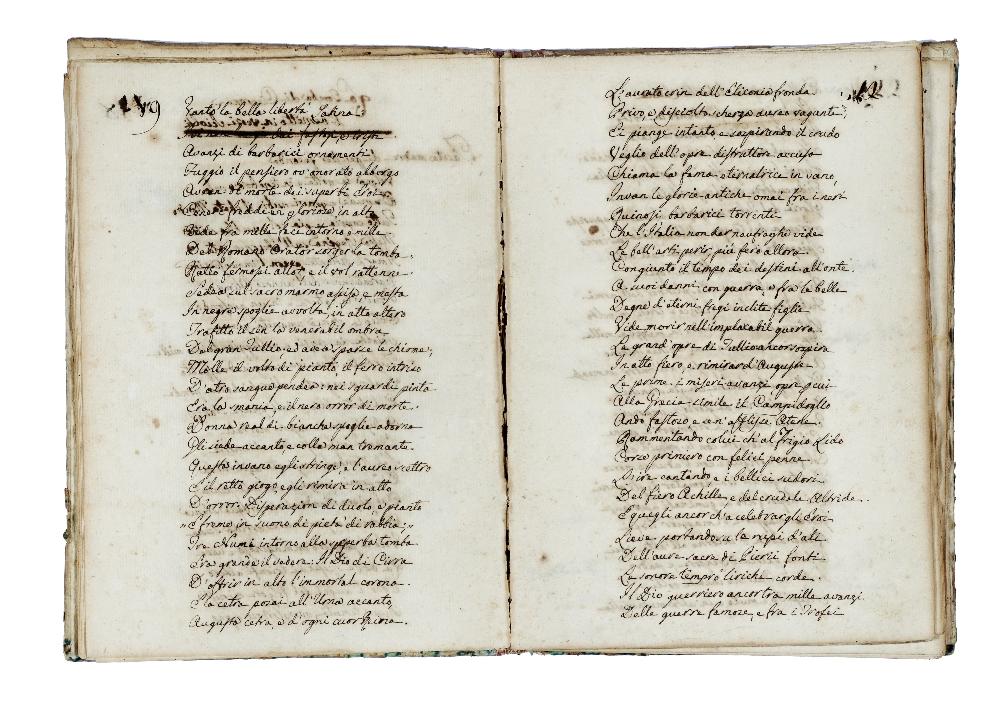 Tanto la bella libertà Latina.
Avanzi di barbarici ornamenti
Fuggio il pensiero ov'onorato albergo
Avean di morte dei superbi Eroi
Ceneri freddi e gloriosi, in alto
Vide fra mille faci intorno e mille
Del Romano Orator sorger la tomba.
fermossi allor, e il vol rattenne
Sedea sul sacro marmo assisa, e mesta
In negre spoglie avvolta, in atto altero
Trafitta il sen la venerabil ombra
Del gran Tullio, ed avea sparse le chiome,
Molle il volto di pianto, il ferro intriso
D'atro sangue pendea: nei sguardi pinta
Era la smania, e il nero orror di morte.
Donna real di bianche spoglie adorna
Gli siede accanto, e colla man tremante
Questa invano egli stringe, e l'aureo scettro
E il retto giogo egli rimira in alto
D'orror, Disperazion di duolo, e pianto
"Fremo in suono di pietà di rabbia;"
Tre Numi intorno alla superba tomba
Era grande il vedere. Il Dio di Cirra
D'offrir in alto l'immortal corona.
E la cetra posai all'Urna accanto,
Augusta cetra, e d'ogni cuor
L'aurato crin dell'Eliconia fronda
Privo, e disciolto scherza aureo vagante;
Ei piange intanto e sospirando il crudo
Veglio dell'opre distruttore accusa
Chiama la fama eternatrice in vano,
Invan le glorie antiche omai fra i neri
Ruinosi barbarici torrenti
Che l'Italia non der naufraghe vide
Le bell'arti perir, più fero allora
Congiunto il tempo dei destini all'onte.
A suoi danni con guerra, e fra le belle
Degne d'eterni fregi inclite figlie
Vide morir nell'implacabil guerra
Le grand'opre di Tullio ancor sospira
In atto fiero, e rimirar d'Augusto
Le prime, i miseri avanzi opre
Alla Grecia simile il Campidoglio
Andò fastoso e sen' afflisse Atene.
Rammentando colui ch'al Frigio Lido
Corse primiero con felici penne
L'ire cantando, e i bellici sudori
Del fiero Achille, e del crudele Atride.
E quegli ancor ch'a celebrar gli Eroi
Lieve portando a le rupi d'ali
Dell'aure sacre di Pierii fonti
Le sonore temprò liriche corde.
Il Dio guerriero ancor tra mille avanzi
Delle guerre famose, e fra i Trofei